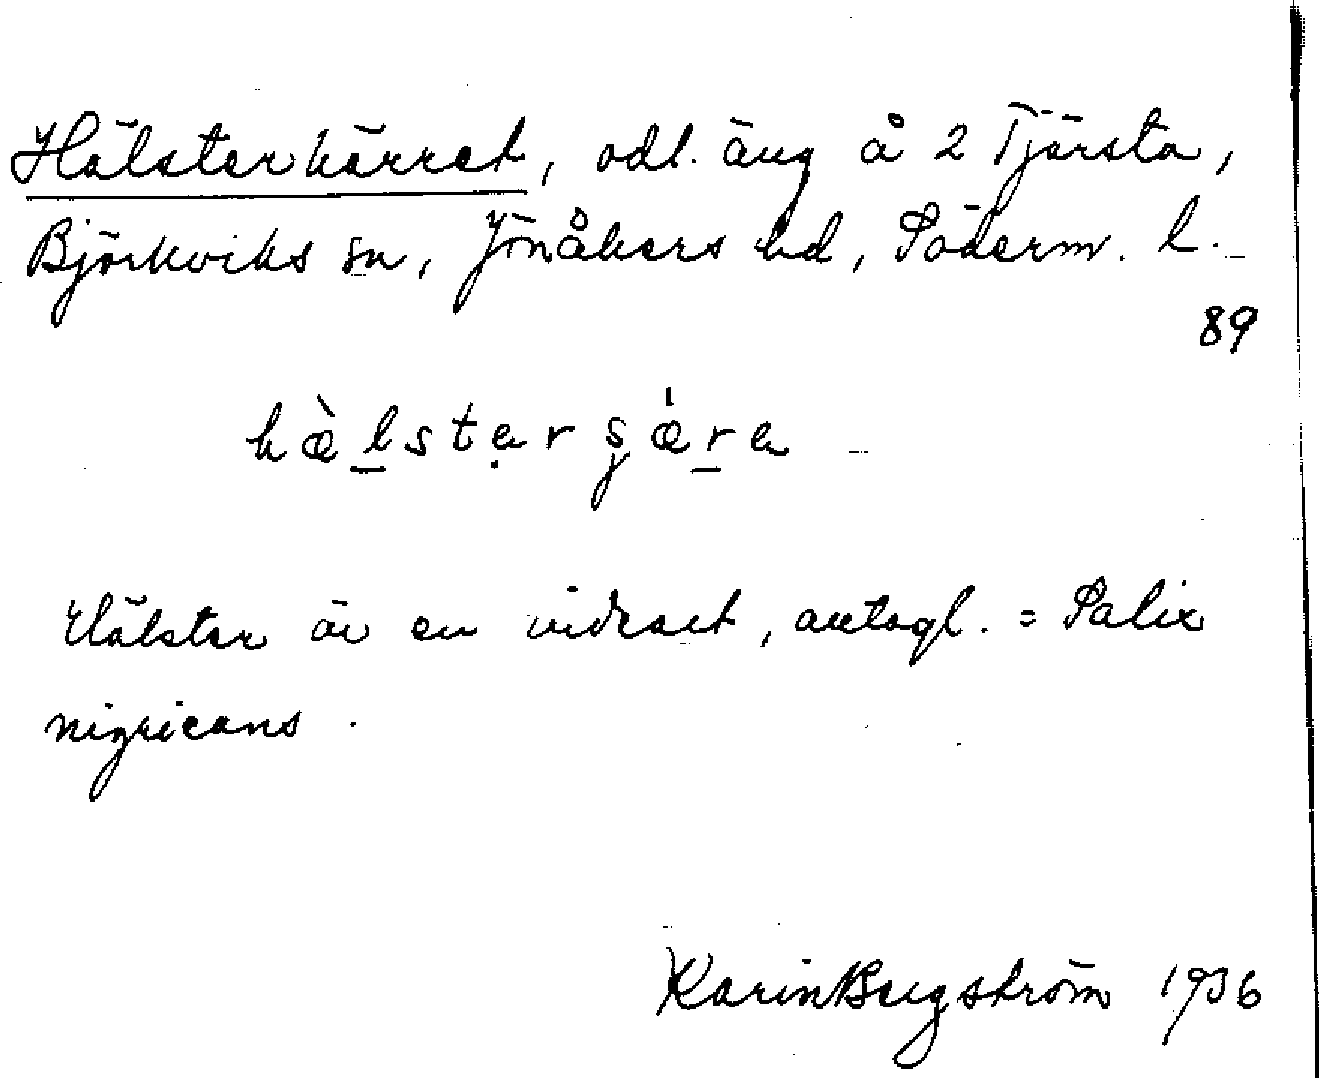 Hälsterkärret, odl. äng å 2 Tjärsta,
Björkviks sn, Jönåkers hd, Söderm. l.
89
hæ̀l̲stẹrʂǽr̲e
Hälster är en videart, antagl. = Salix
nigricans.
Karin Bergström 1936